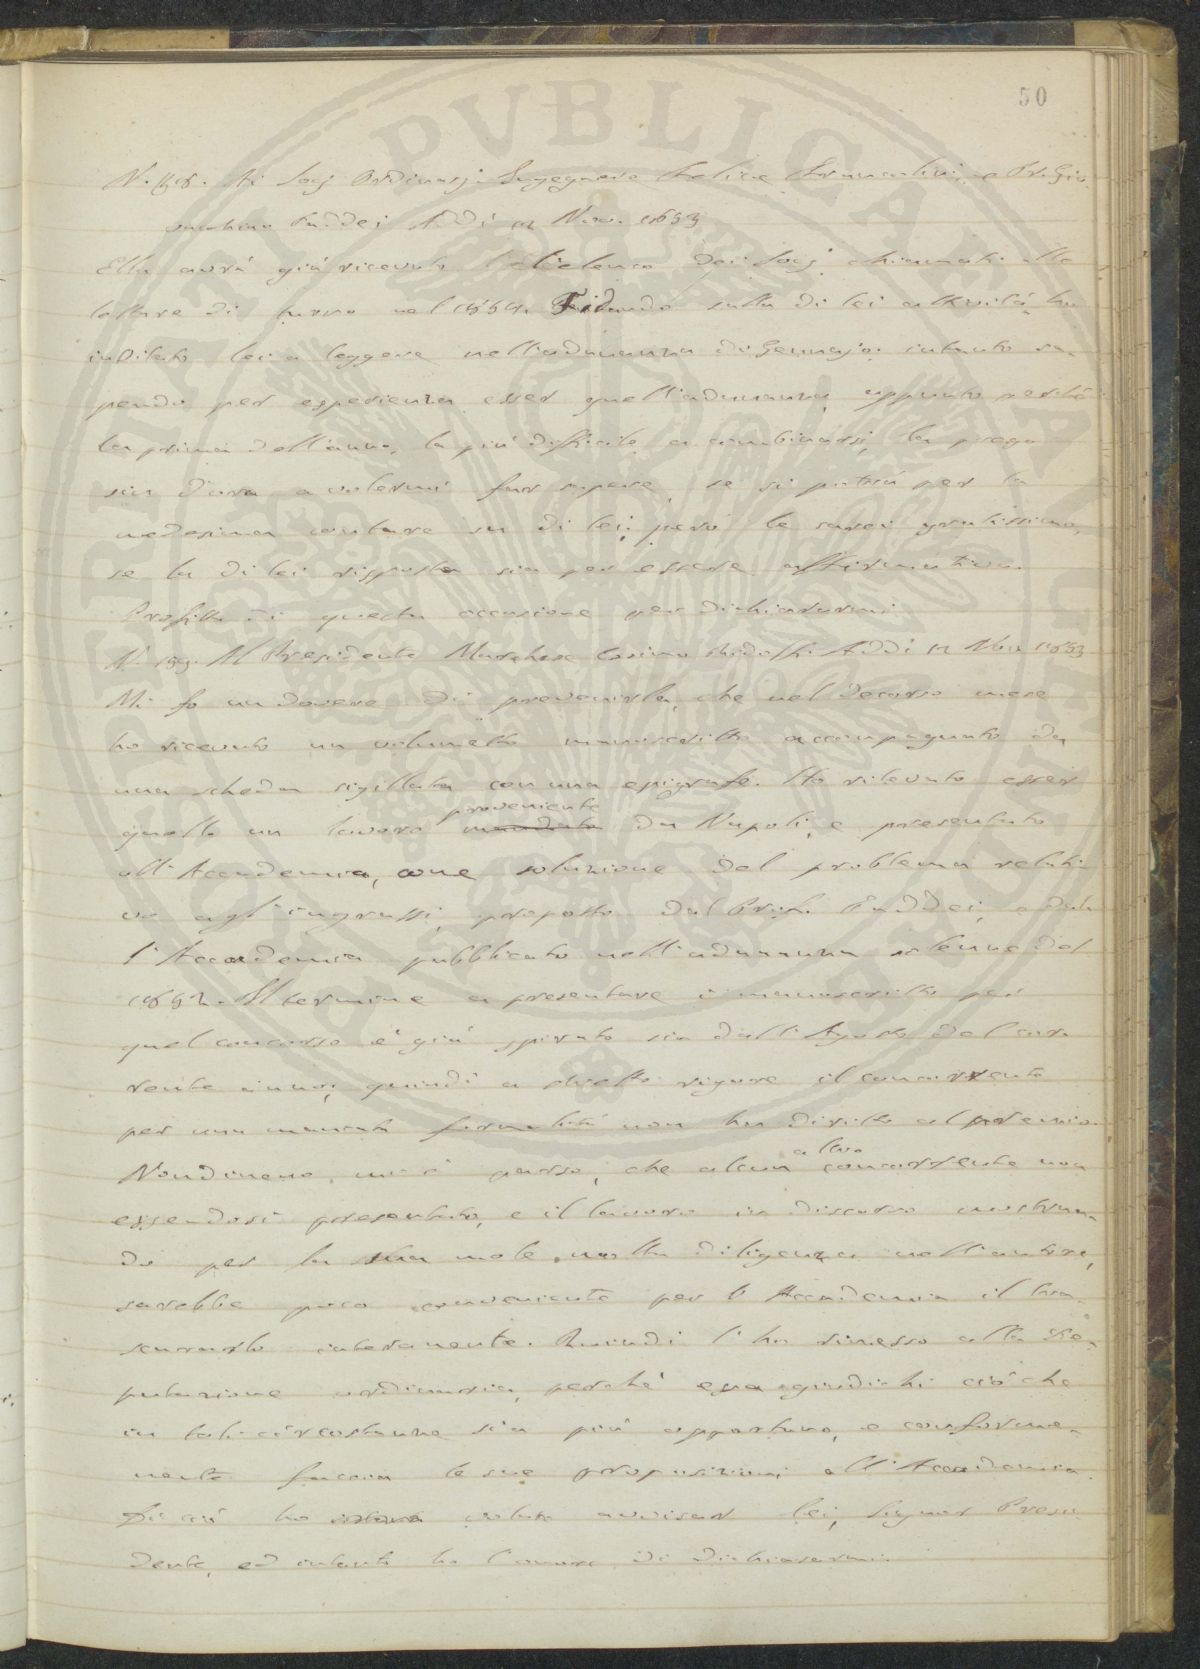 50
N. 158. Ai Socj Ordinarj Ingegnere Felice Francolini, e Pr. Gio
vacchino Taddei Addi 12 Nov. 1853
Ella avrà già ricevuto l'elenco dei Socj chiamati alle
letture di turno nel 1854. Fidando sulla di lei attività ho
invitato lei a leggere nell'adunanza di Gennajo: intanto sa-
pendo per esperienza esser quell'adunanza, appunto perchè
la prima dell'anno, la più difficile a combinarsi, la prego
sin d'ora a volermi far sapere, se si potrà per la
medesima contare su di lei; però le sarei gratissimo,
se la di lei risposta sia per essere affirmativa.
Profitto di questa occasione per dichiararmi
N. 159. Al Presidente Marchese Cosimo Ridolfi. Addi 12 Nbre 1853
Mi fo un dovere di prevenirla, che nel decorso mese
ho ricevuto un volumetto manoscritto accompagnato da
una scheda sigillata con una epigrafe. Ho rilevato esser
proveniente
quello un lavoro mandato da Napoli, e presentato
all'Accademia, come soluzione del problema relati-
vo agl'ingrassi, proposto dal Prof. Taddei, e dal-
l'Accademia pubblicato nell'adunanza solenne del
1852. Il termine a presentare i manoscritti per
quel concorso è già spirato sin dall'Agosto del cor-
rente anno; quindi a stretto rigore il concorrente
per una mancata formalità non ha diritto al premio.
altro
Nondimeno, mi è parso, che alcun concorrente non
essendosi presentato, e il lavoro in discorso mostran-
do per la sua mole molta diligenza nell'autore,
sarebbe poco conveniente per l'Accademia il tra-
scurarlo interamente. Quindi l'ho rimesso alla De-
putazione ordinaria, perchè essa giudichi ciò che
in tali circostanze sia più opportuno, e conforme-
mente faccia le sue proposizioni all'Accademia.
Di ciò ho voluto avvisar lei, Signor Presi-
dente, ed intanto ho l'onore di dichiararmi.